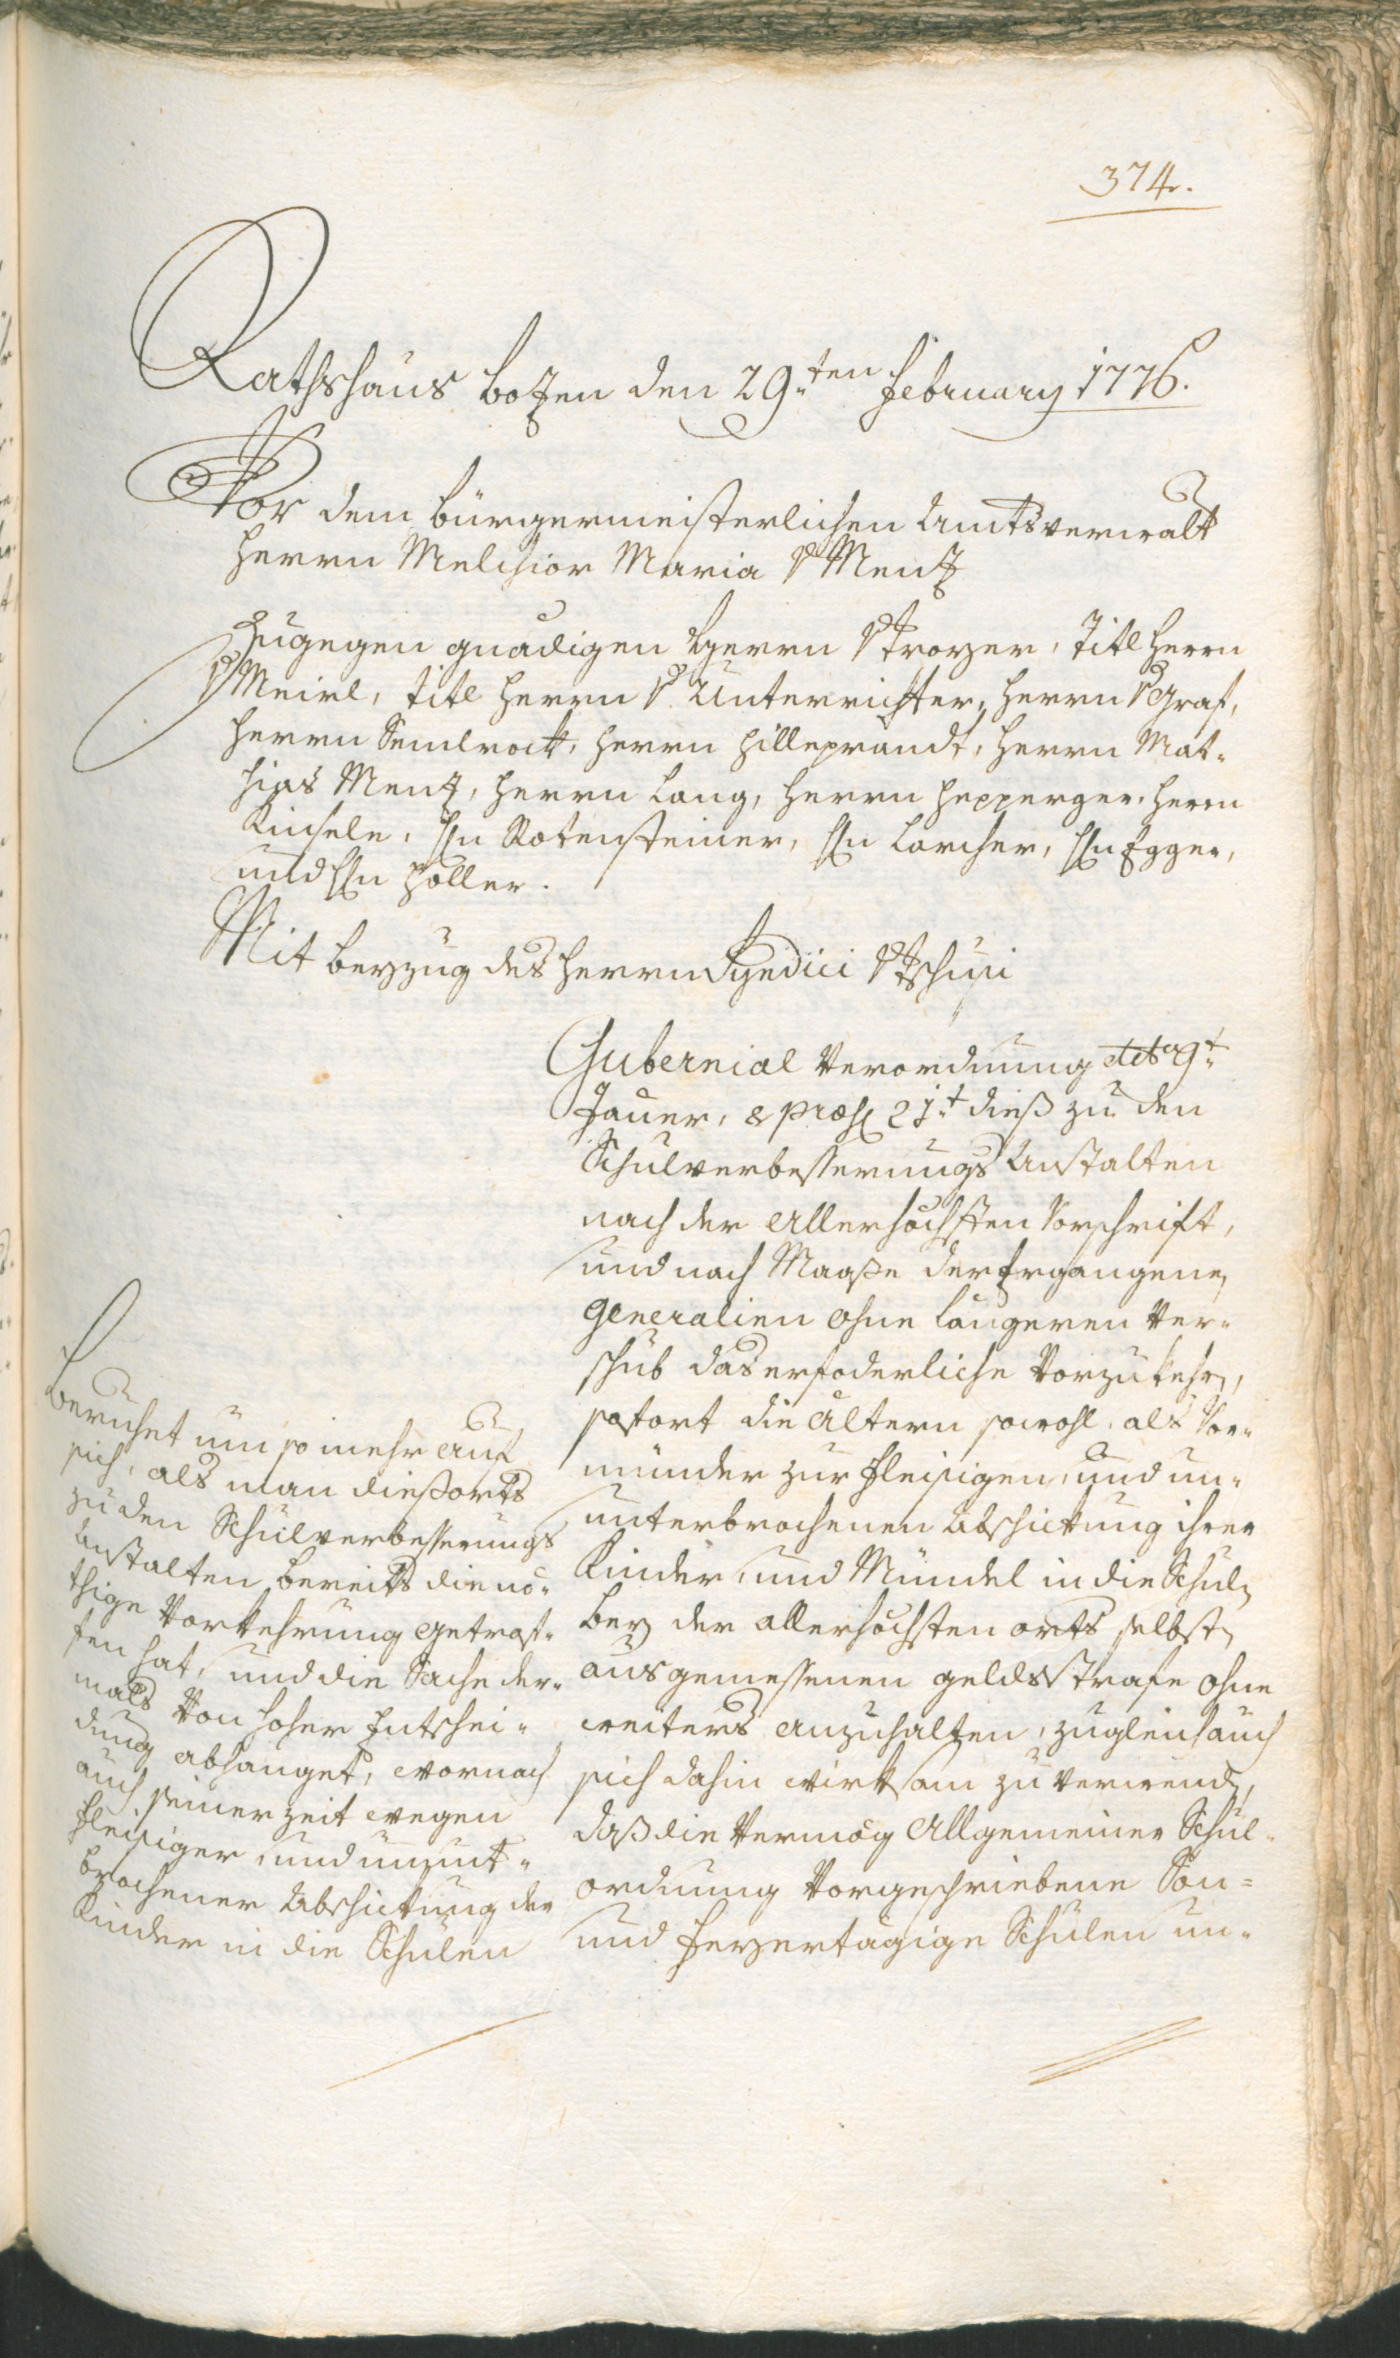 374.
Rathshaus Bozen den 29.ten February 1776.
Vor dem Bürgermeisterlichen Amtsverwalt
Herrn Melchior Maria v Menz
Zugegen gnädigen Herrn v Troyer, Titl Herrn
v Meirl, Titl Herrn v. Unterrichter, Herrn v Graf,
Herrn Semlrock, Herrn Hilleprandt, Herrn Mat-
hias Menz, Herrn Lang, Herrn Hepperger, Herrn
Kinsele, Hn Rotensteiner, Hn Larcher, Hn Egger,
und Hn Holler.
Mit beyzug des Herrn Syndici v Tschusi
Gubernial Verordnung 9.t
Jäner, & præs 21.t dieß zu den
Schulverbesserungs Anstalten
nach der Allerhöchsten Vorschrift,
und nach Maaße der Ergangenen
Generalien ohne längeren Ver-
schub das erfoderliche Vorzukehren,
sofort die ältern sowohl, als Vor-
münder zur fleisigen, und un-
unterbrochenen Abschickung ihrer
Kinder, und Mündel in die Schulen
bey der allerhöchsten orts selbsten
ausgemessenen geldsstrafe ohne
weiters anzuhalten, zugleich auch
sich dahin wirksam zu verwenden,
daß die Vermög Allgemeiner Schul-
ordnung Vorgeschriebene Son=
und feyertägige Schulen un-
Beruhet um so mehr auf
sich, als man dießorts
zu den Schulverbesserungs
Anstalten bereits die nö-
thige Vorkehrung getrof-
fen hat, und die Sache der-
mals Von hoher Entschei-
dung abhanget, wornach
auch seiner zeit wegen
fleisiger, und ununt-
brochener Abschickung der
Kinder in die Schulen